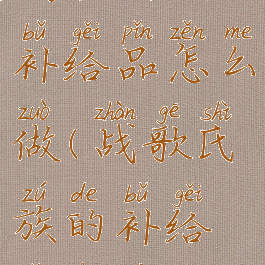 bǔ gěi pǐn zěn me
补给品怎么
zuò zhàn gē shì
做(战歌氏
zú de bǔ gěi
族的补给